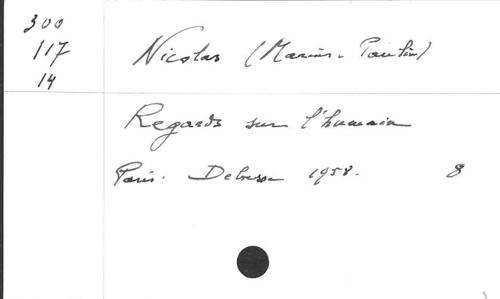 300
117
14
Nicolas (Marius-Paulin)
Regards sur l'humain
Paris. Debresse 1958. 8